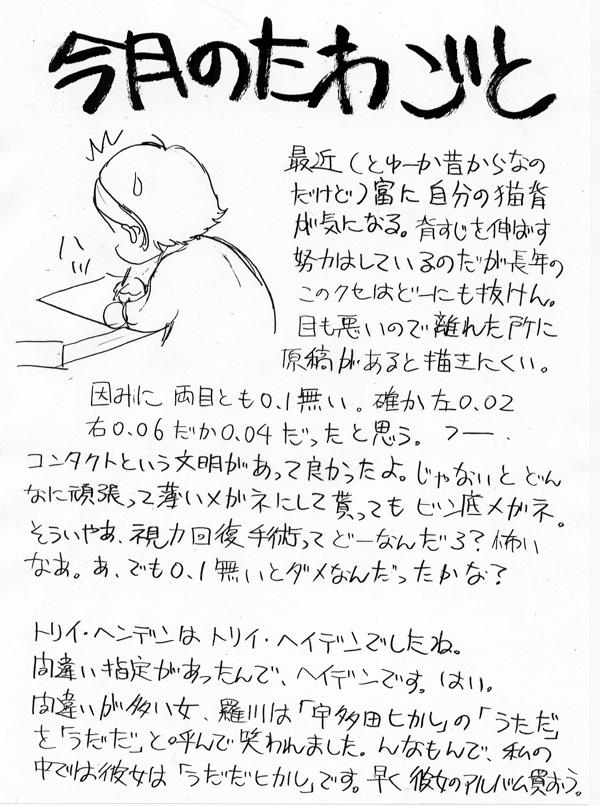 今月のたわごと
最近(とゆーか昔からなの
だけど)富に自分の猫背
が気になる。背すじを伸ばす
努力はしているのだが長年の
このクセはどーにも抜けん。
目も悪いので離れた所に
原稿があると描きにくい。
ハッ
因みに両目とも0.1無い。確か左0.02
右0.06だか0.04だったと思う。フー.
コンタクトという文明があって良かったよ。じゃないとどん
なに頑張って薄いメガネにして貰ってもビン底メガネ。
そういやあ、視力回復手術ってどーなんだろ?怖い
なあ。あ、でも0.1無いとダメなんだったかな?
トリイ・ヘンデンはトリイ・ヘイデンでしたね。
間違い指定があったんで、ヘイデンです。はい。
間違いが多い女、羅川は「宇多田ヒカル」の「うただ」
を「うだだ」と呼んで笑われました。んなもんで、私の
中では彼女は「うだだヒカル」です。早く彼女のアルバム買おう。